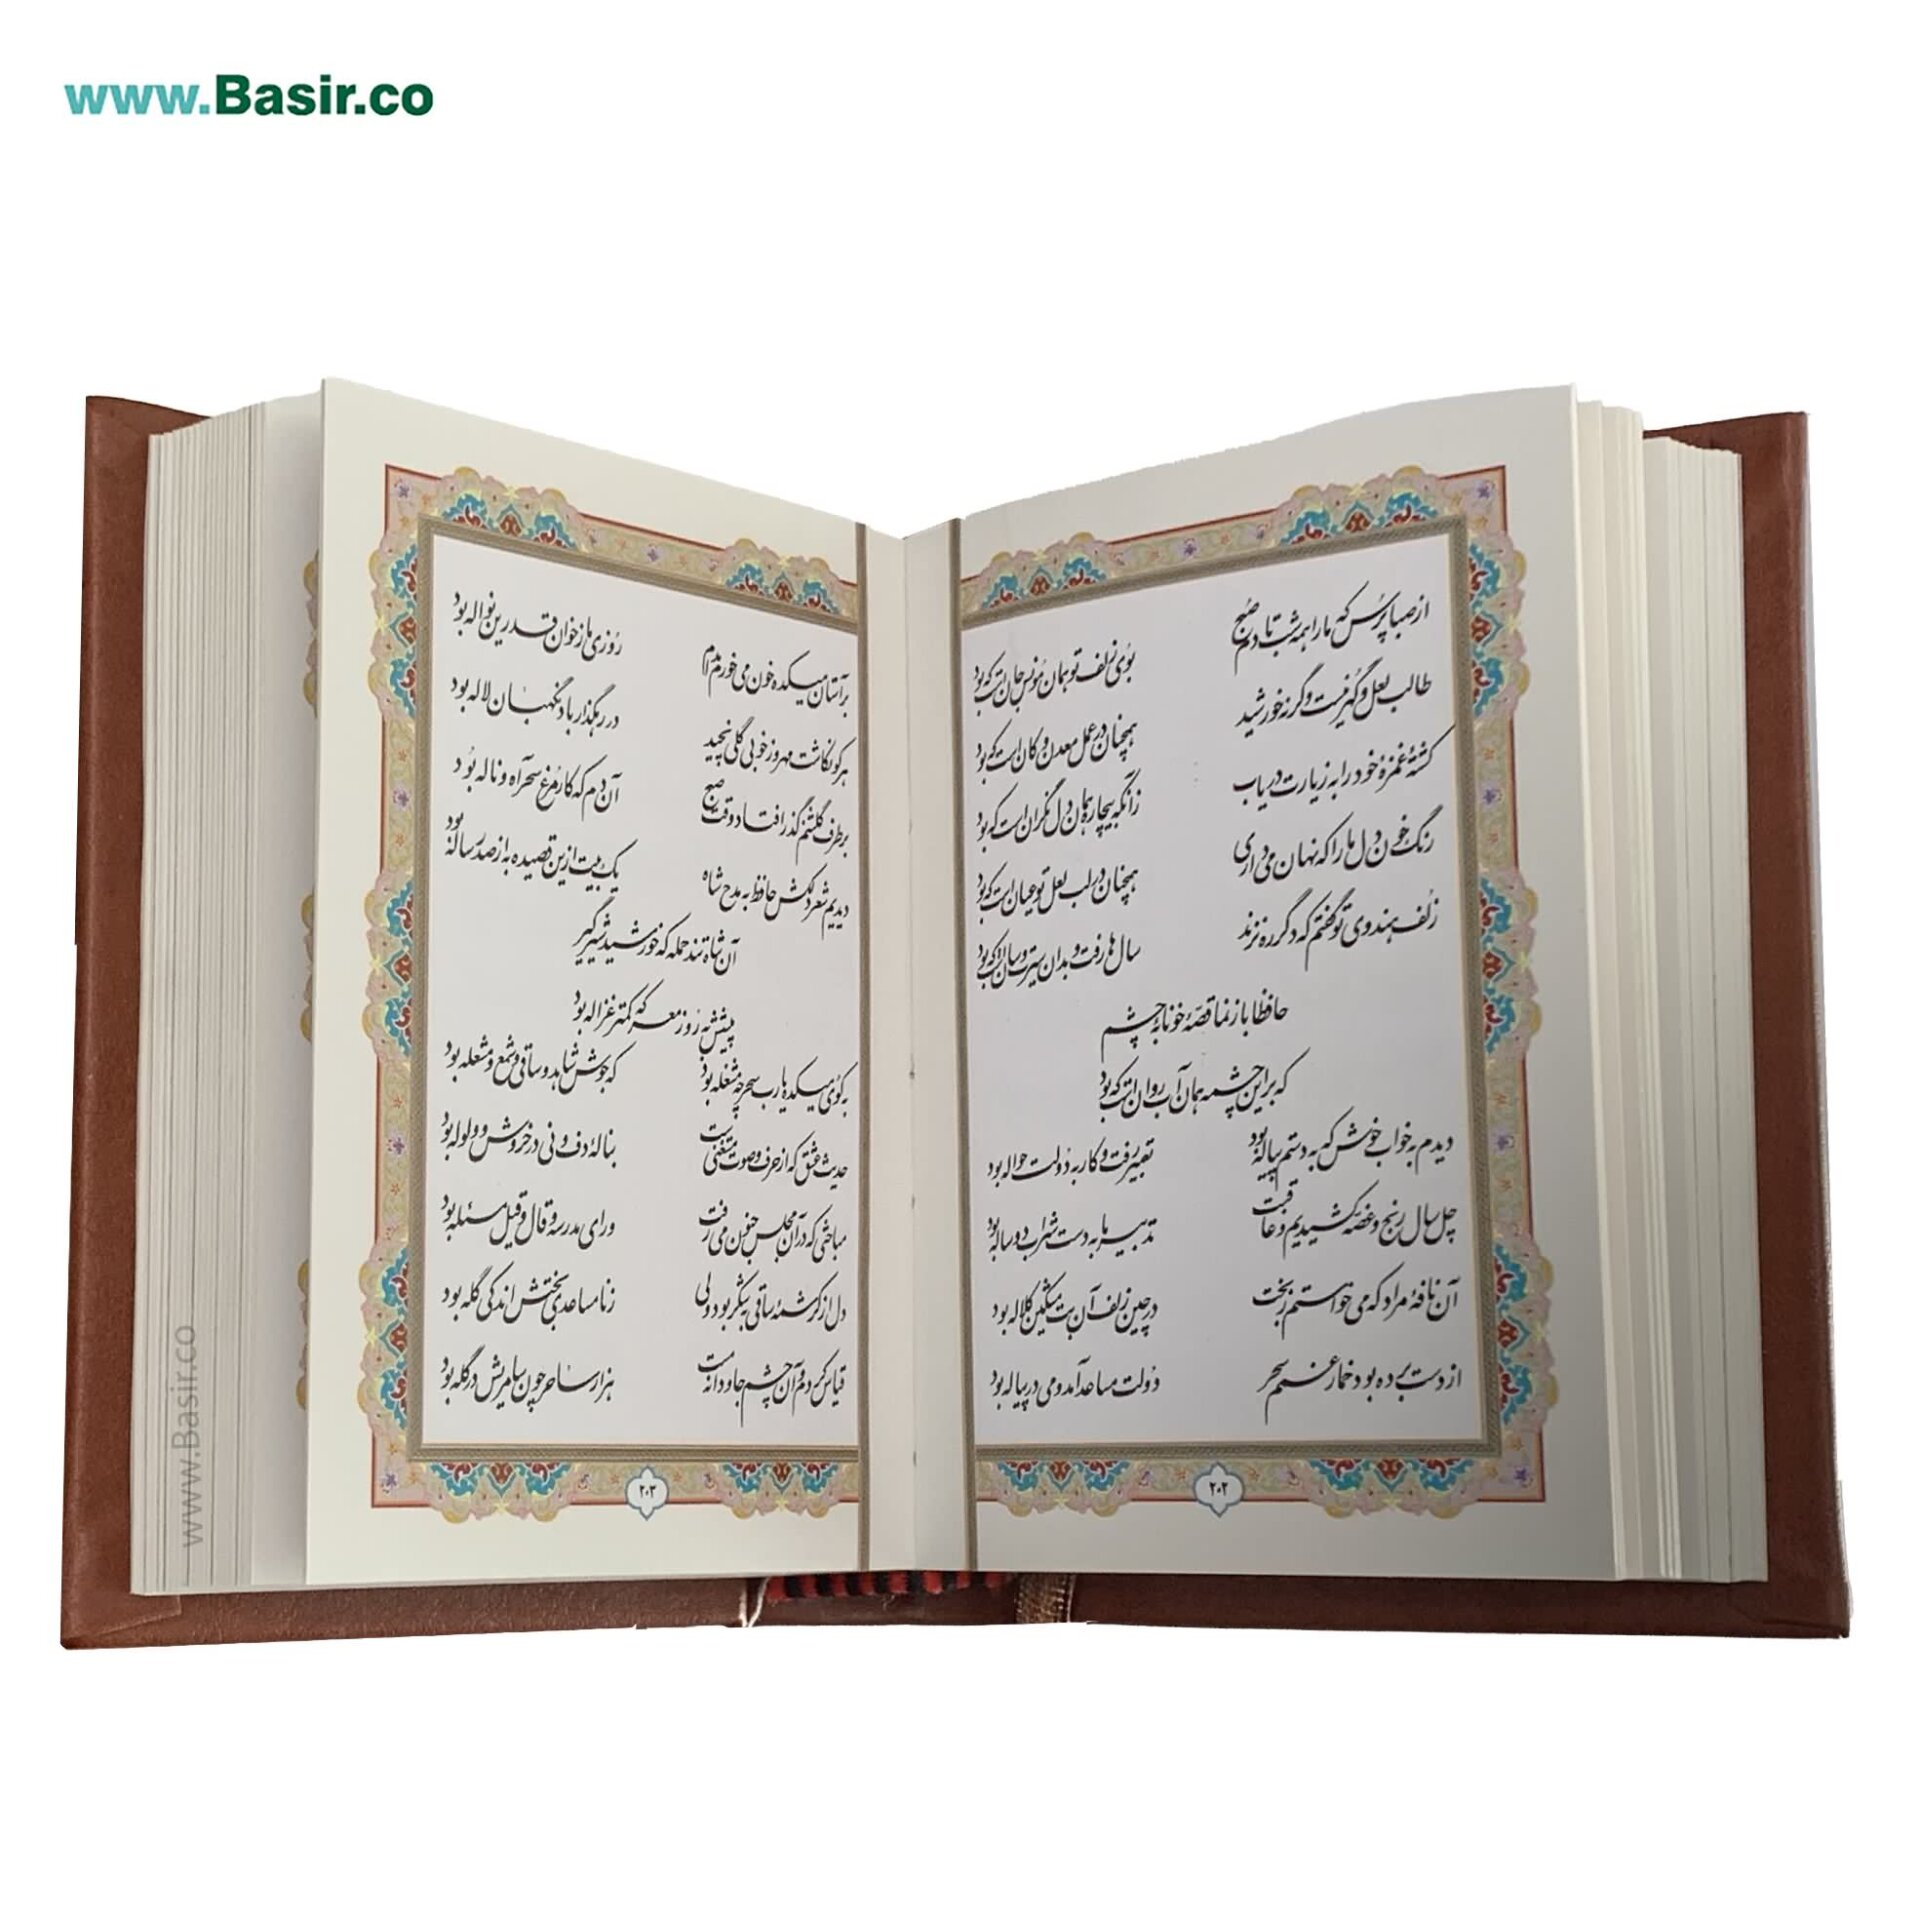 www.Basir.co
از صبا پرس که ما را همه شب تا دم صبح
بوی زلف تو همان مونس جان است که بود
طالب لعل و گهر نیست وگرنه خورشید
همچنان در عمل معدن و کان است که بود
کشتهٔ غمزهٔ خود را به زیارت دریاب
زانکه بیچاره همان دل‌نگران است که بود
رنگ خون دل ما را که نهان می‌داری
همچنان در لب لعل تو عیان است که بود
زلف هندوی تو گفتم که دگر ره نزند
سال‌ها رفت و بدان سیرت و سان است که بود
حافظا باز نما قصهٔ خونابهٔ چشم
که بر این چشمه همان آب روان است که بود
دیدم به خواب خوش که به دستم پیاله بود
تعبیر رفت و کار به دولت حواله بود
چل سال رنج و غصه کشیدیم و عاقبت
تدبیر ما به دست شراب دوساله بود
آن نافهٔ مراد که می‌خواستم ز بخت
در چین زلف آن بت مشکین کلاله بود
از دست برده بود خمار غمم سحر
دولت مساعد آمد و می در پیاله بود
۲۰۲
بر آستان میکده خون می‌خورم مدام
روزی ما ز خوان قدر این نواله بود
هر کو نکاشت مهر و ز خوبی گلی نچید
در رهگذار باد نگهبان لاله بود
بر طرف گلشنم گذر افتاد وقت صبح
آن دم که کار مرغ سحر آه و ناله بود
دیدیم شعر دلکش حافظ به مدح شاه
یک بیت از این قصیده به از صد رساله بود
آن شاه تند حمله که خورشید شیرگیر
پیشش به روز معرکه کمتر غزاله بود
به کوی میکده یا رب سحر چه مشغله بود
که جوش شاهد و ساقی و شمع و مشعله بود
حدیث عشق که از حرف و صوت مستغنی‌ست
به نالهٔ دف و نی در خروش و ولوله بود
مباحثی که در آن مجلس جنون می‌رفت
ورای مدرسه و قال و قیل مسئله بود
دل از کرشمهٔ ساقی به شکر بود ولی
ز نامساعدی بختش اندکی گله بود
قیاس کردم و آن چشم جادوانهٔ مست
هزار ساحر چون سامریش در گله بود
۲۰۳
www.Basir.co